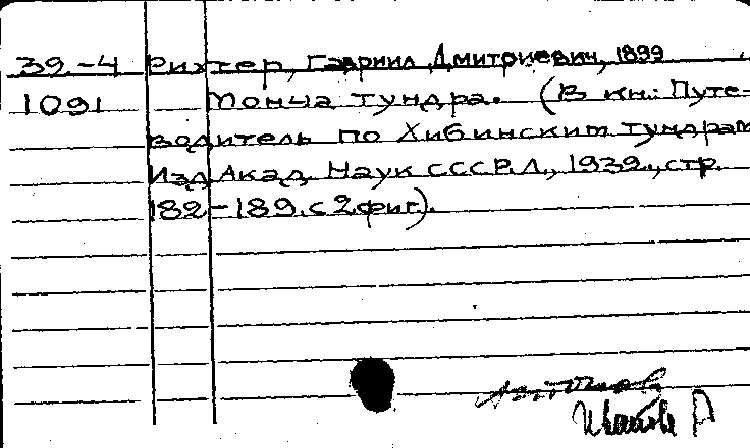 39-4 Рихтер, Гавриил Дмитриевич, 1899
1091 Монча тундра. (В кн.: Путе-
водитель по Хибинским тундрам
Изд. Акад. Наук СССР. Л., 1939., стр.
182-189. с 2 фиг.).